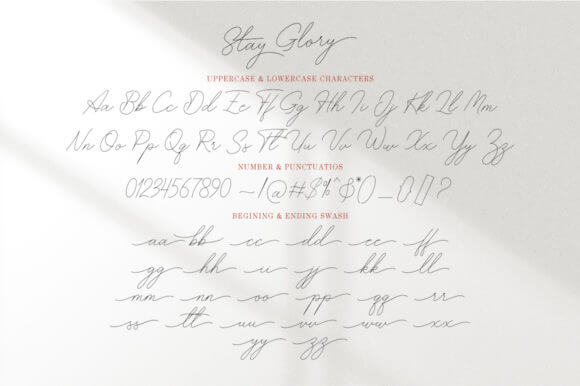 Stay Glory
UPPERCASE & LOWERCASE CHARACTERS
Aa Bb Cc Dd Ee Ff Gg Hh Ii Jj Kk Ll Mm
Nn Oo Pp Qq Rr Ss Tt Uu Vv Ww Xx Yy Zz
NUMBER & PUNCTUATIOS
01234567890 ~!@#$%^&*() _ {} [] ?
BEGINING & ENDING SWASH
aa bb cc dd ee ff
gg hh ii jj kk ll
mm nn oo pp qq rr
ss tt uu vv ww xx
yy zz